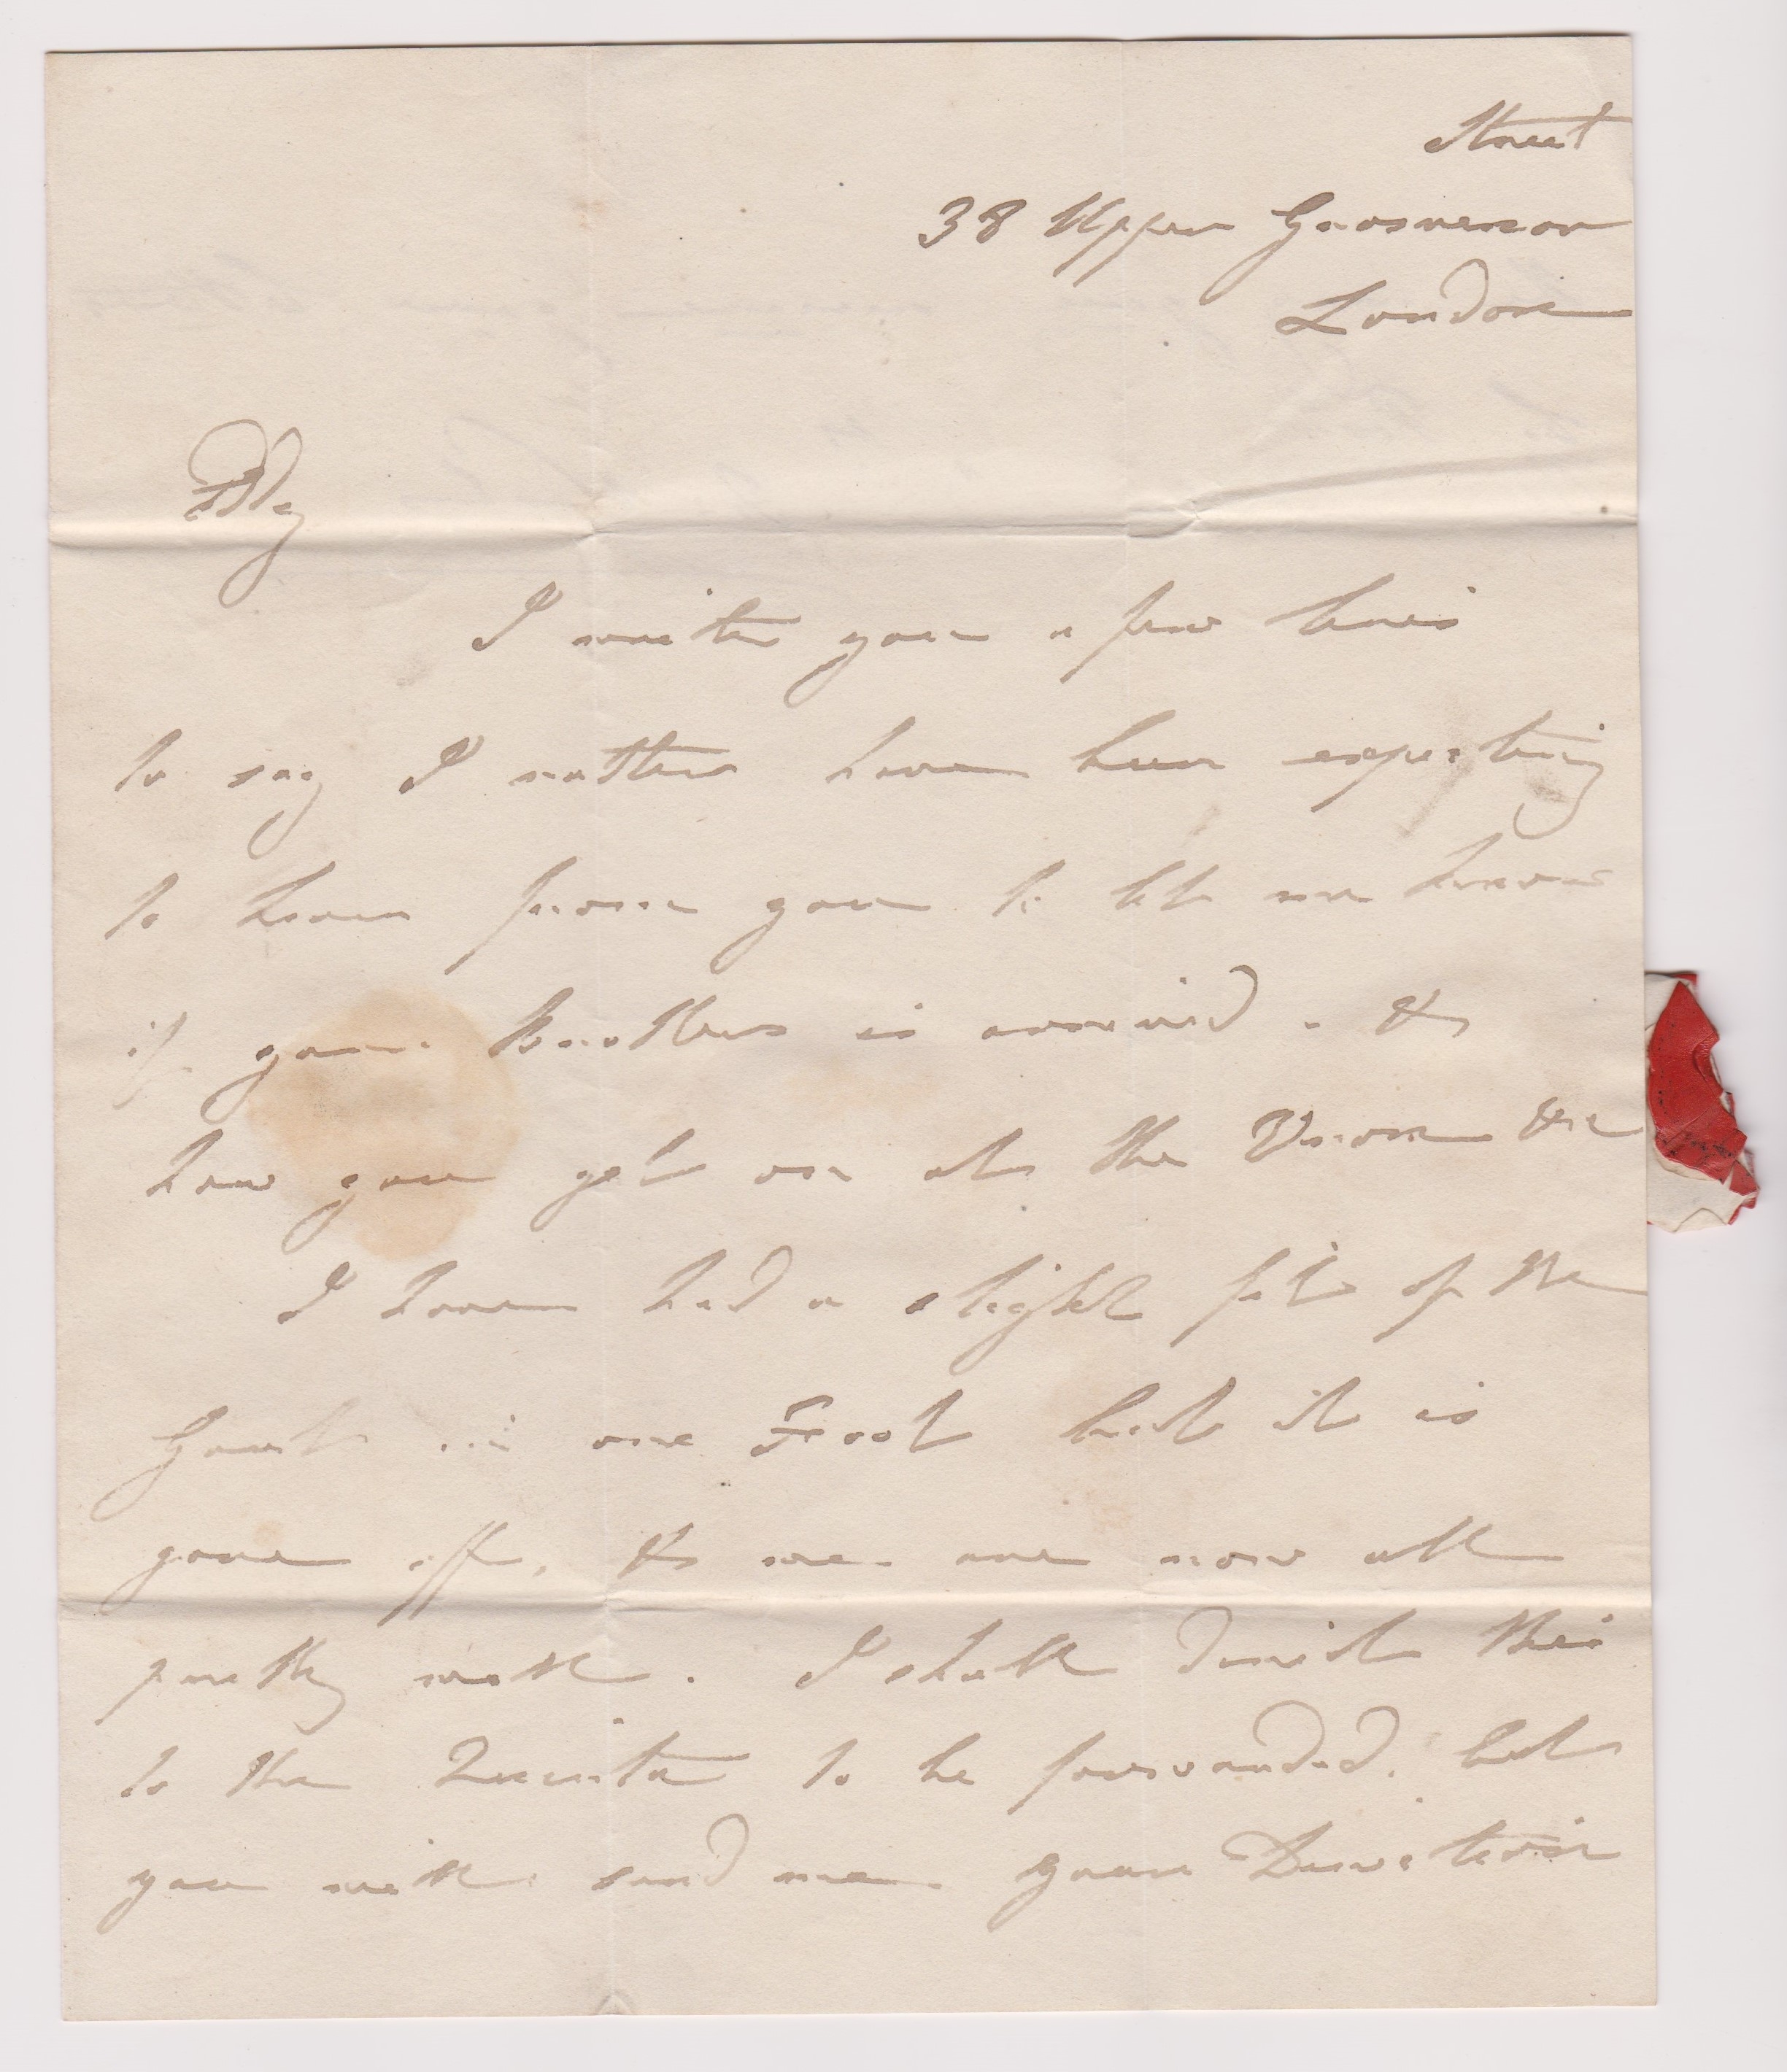 Street
38 Upper Grosvenor
London
I write you a few lines
to say I rather have been expecting
to hear from you to let me know
if your Brother is arrived. &
how you get on at the Union &c
I have had a slight fit of the
Gout in one Foot but it is
gone off, & we are now all
pretty well. I shall direct this
to the to be forwarded, but
you will send me your Direction